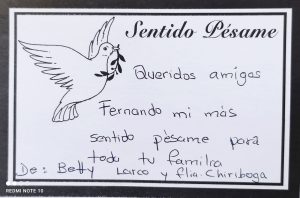 Sentido Pésame
Queridos amigos
Fernando mi más
sentido pèsame para
toda tu familia
De: Betty Larco y flia. Chiriboga
REDMI NOTE 10